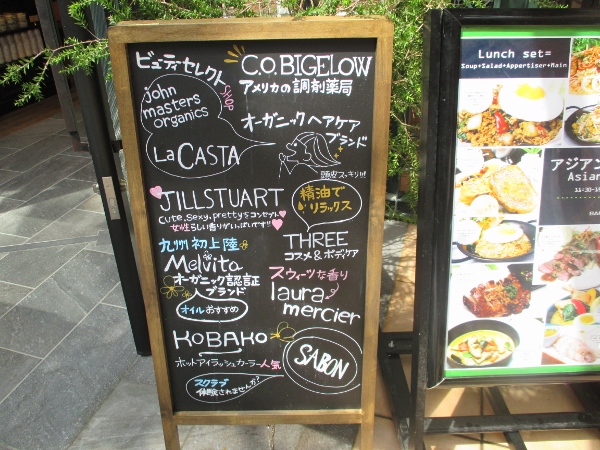 ビューティセレクト
SHOP
C.O. BIGELOW
アメリカの調剤薬局
john
masters
organics
LaCASTA
オーガニックヘアケア
ブランド
頭皮スッキリ!!!
JILLSTUART
Cute,Sexy,prettyなコンセプト
女性らしい香りがいっぱいです!!
精油で
リラックス
THREE
コスメ&ボディケア
九州初上陸
Melvita
オーガニック認証
ブランド
オイルおすすめ
スウィーツな香り
laura
mercier
KOBAKO
ホットアイラッシュカーラー人気
SABON
スクラブ
体験されませんか?
Lunch set=
Soup+Salad+Appertiser+Main
アジアン
Asian
11:30-18